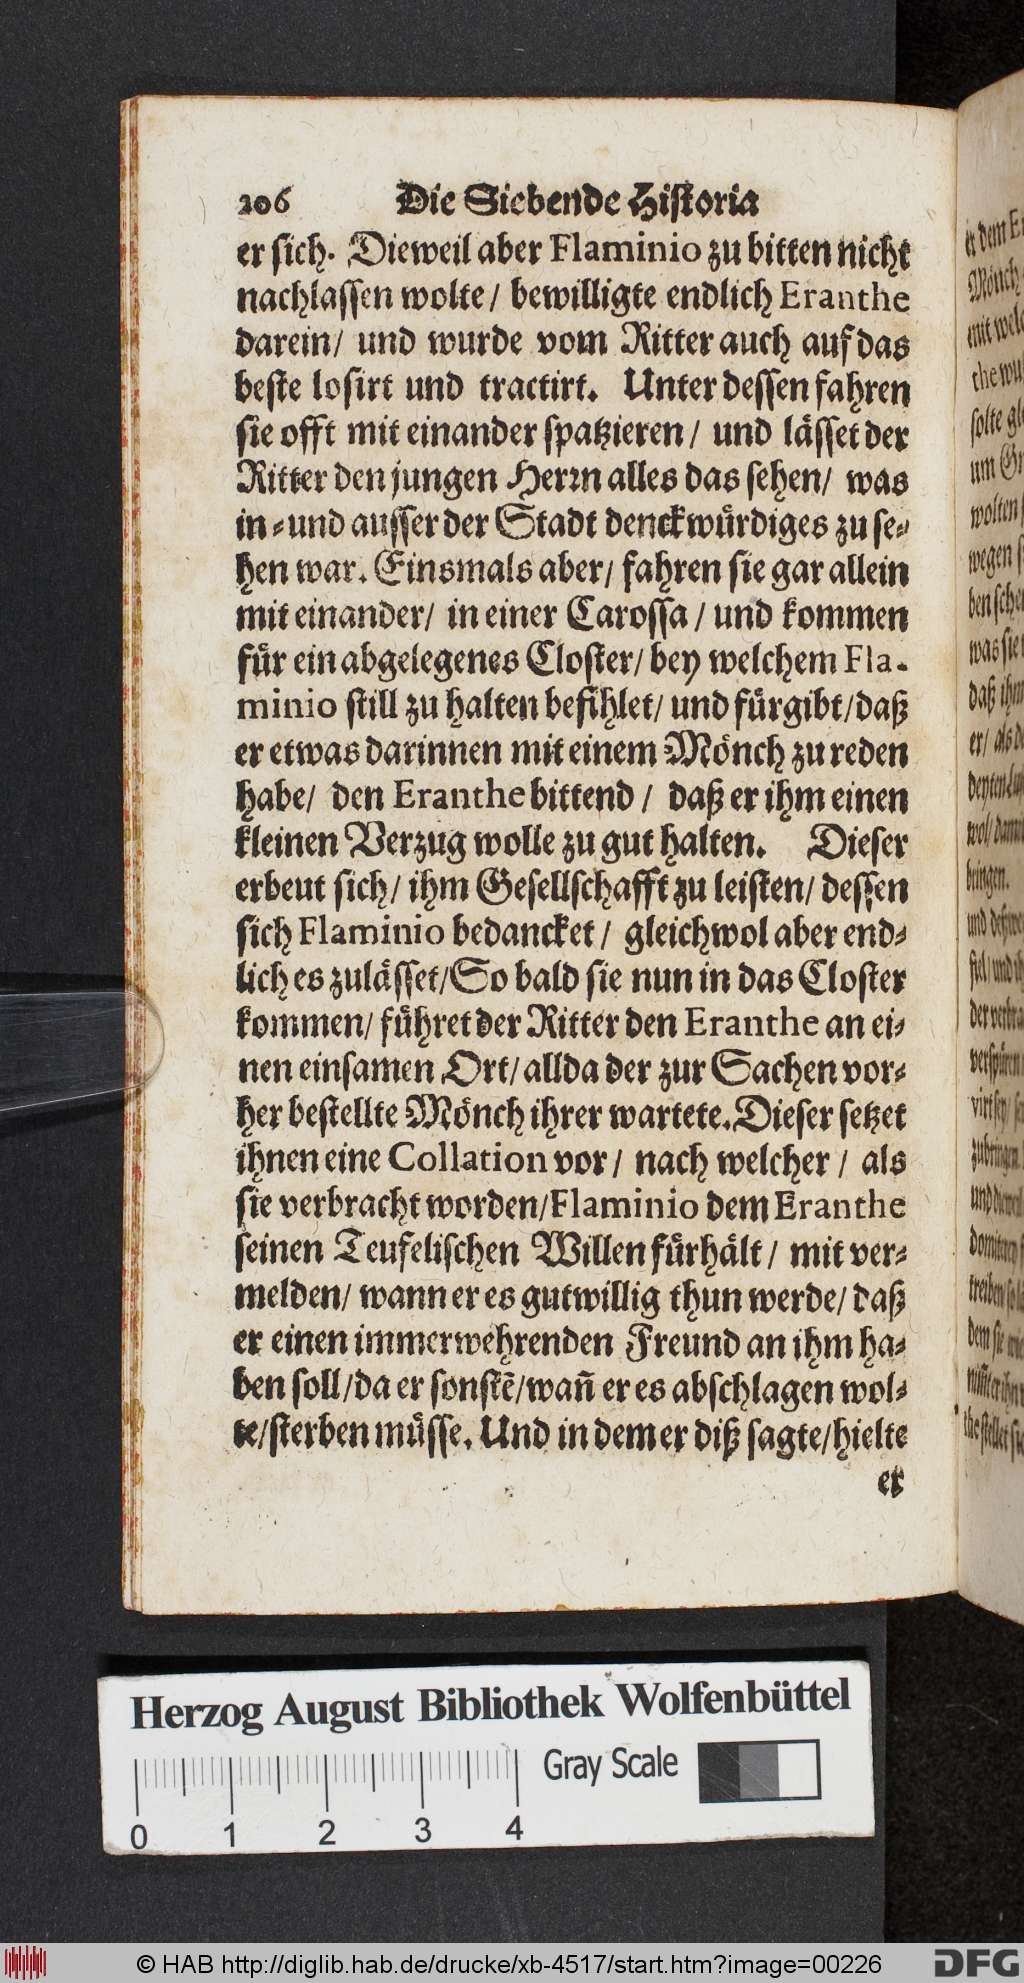 206 Die Siebende Historia
er sich. Dieweil aber Flaminio zu bitten nicht
nachlassen wolte / bewilligte endlich Eranthe
darein / und wurde vom Ritter auch auf das
beste losirt und tractirt. Unter dessen fahren
sie offt mit einander spatzieren / und lässet der
Ritter den jungen Herrn alles das sehen / was
in- und ausser der Stadt denckwürdiges zu se-
hen war. Einsmals aber / fahren sie gar allein
mit einander / in einer Carossa / und kommen
für ein abgelegenes Closter / bey welchem Fla-
minio still zu halten befihlet / und fürgibt / daß
er etwas darinnen mit einem Mönch zu reden
habe / den Eranthe bittend / daß er ihm einen
kleinen Verzug wolle zu gut halten. Dieser
erbeut sich / ihm Gesellschafft zu leisten / dessen
sich Flaminio bedancket / gleichwol aber end-
lich es zulässet / So bald sie nun in das Closter
kommen / führet der Ritter den Eranthe an ei-
nen einsamen Ort / allda der zur Sachen vor-
her bestellte Mönch ihrer wartete. Dieser setzet
ihnen eine Collation vor / nach welcher / als
sie verbracht worden / Flaminio dem Eranthe
seinen Teufelischen Willen fürhält / mit ver-
melden / wann er es gutwillig thun werde / daß
er einen immerwehrenden Freund an ihm ha-
ben soll / da er sonstẽ / wañ er es abschlagen wol-
te / sterben müsse. Und in dem er diß sagte / hielte
er
Herzog August Bibliothek Wolfenbüttel
Gray Scale
0 1 2 3 4
© HAB http://diglib.hab.de/drucke/xb-4517/start.htm?image=00226
DFG